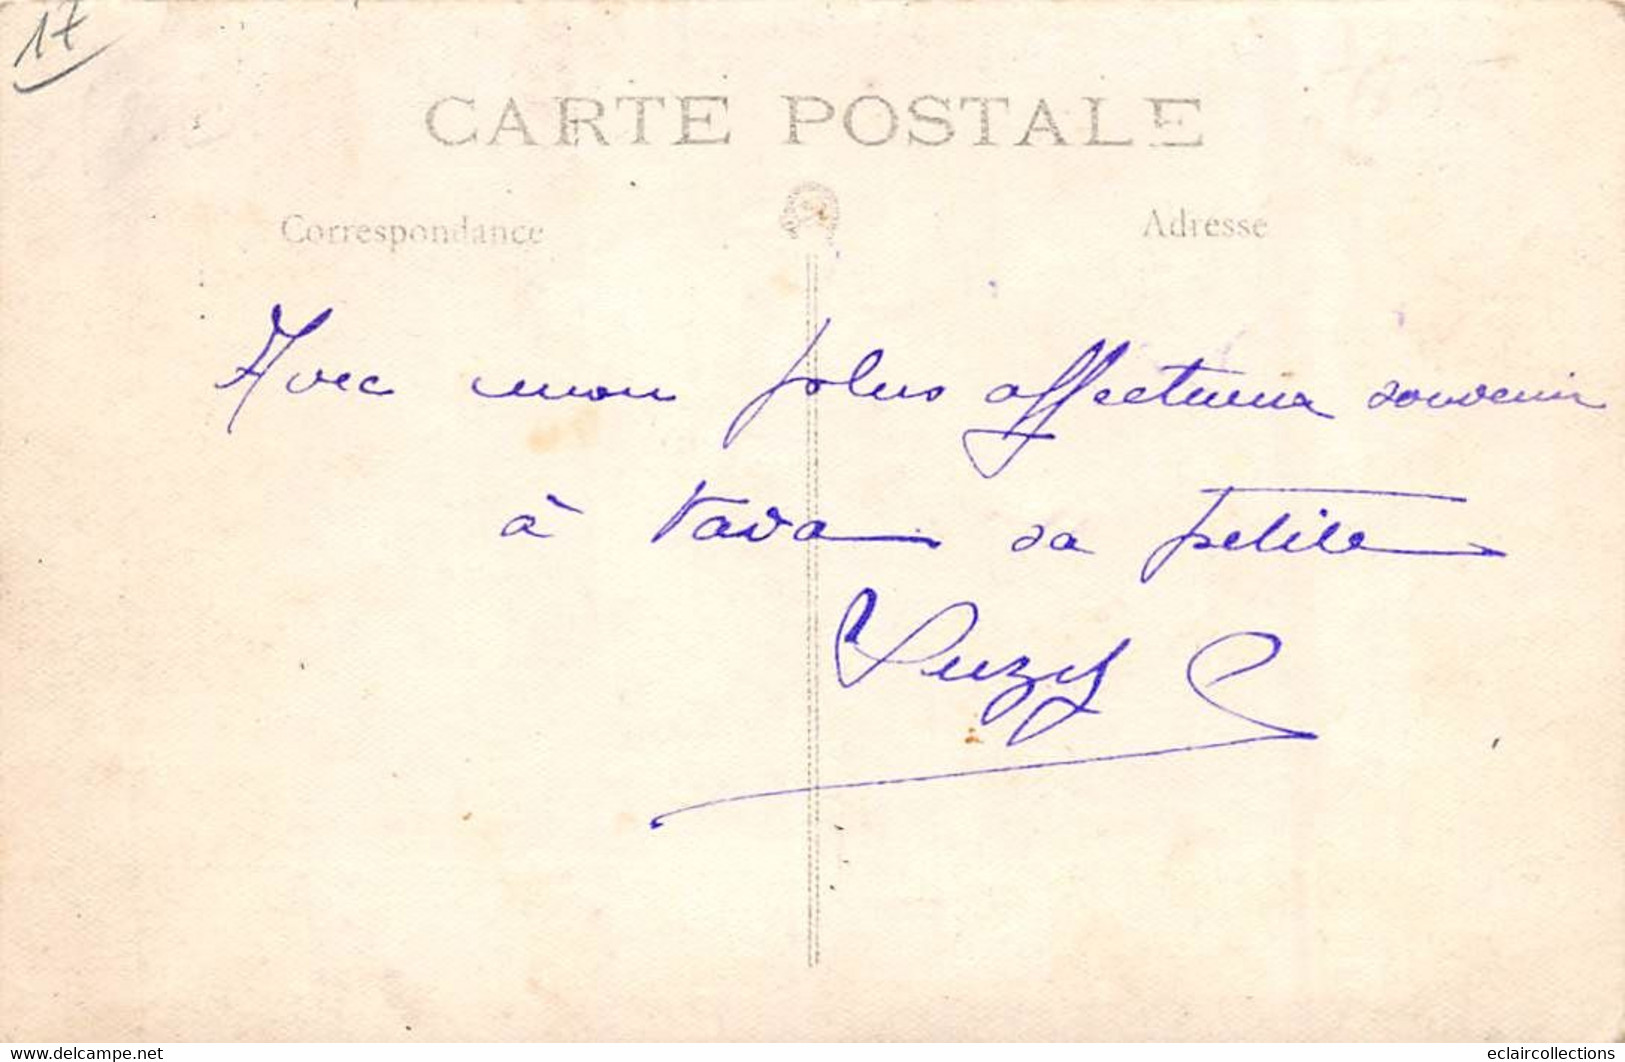 17
CARTE POSTALE
Correspondance
Adresse
Avec mon plus affectueux souvenir
à Vava sa petite
Suzy
www.delcampe.net
eclaircollections